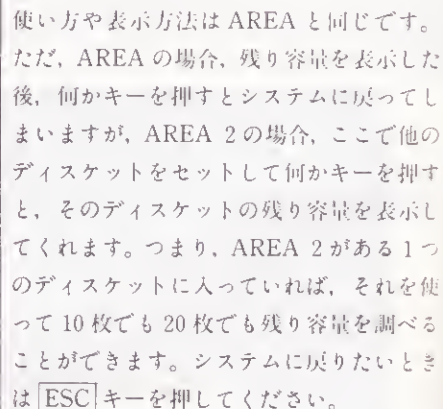 使い方や表示方法は AREA と同じです。
ただ，AREA の場合，残り容量を表示した
後，何かキーを押すとシステムに戻ってし
まいますが，AREA 2 の場合，ここで他の
ディスケットをセットして何かキーを押す
と，そのディスケットの残り容量を表示し
てくれます。つまり，AREA 2 がある 1 つ
のディスケットに入っていれば，それを使
って 10 枚でも 20 枚でも残り容量を調べる
ことができます。システムに戻りたいとき
は ESC キーを押してください。